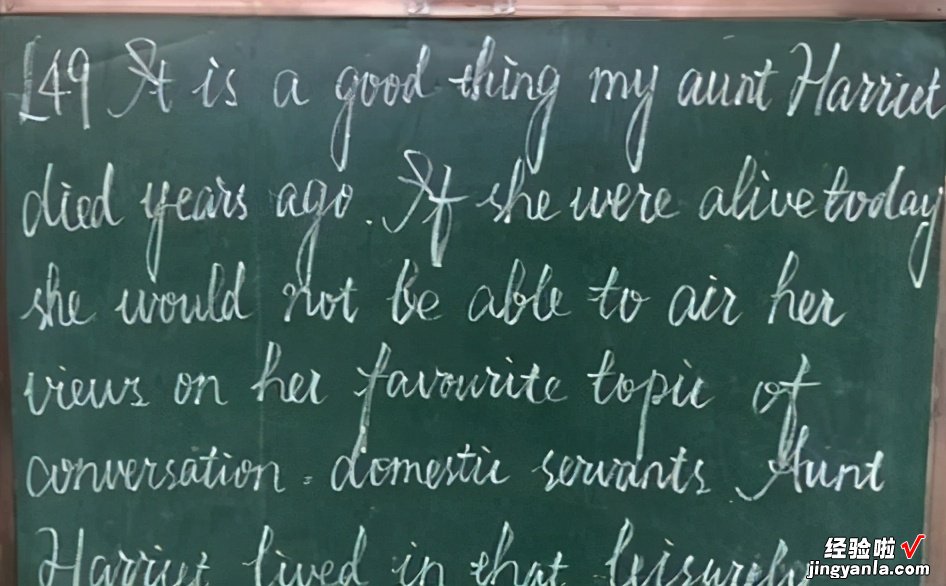 L49 It is a good thing my aunt Harriet
died years ago. If she were alive today
she would not be able to air her
views on her favourite topic of
conversation : domestic servants. Aunt
Harriet lived in that leisurely
经验啦√
jingyanla.com